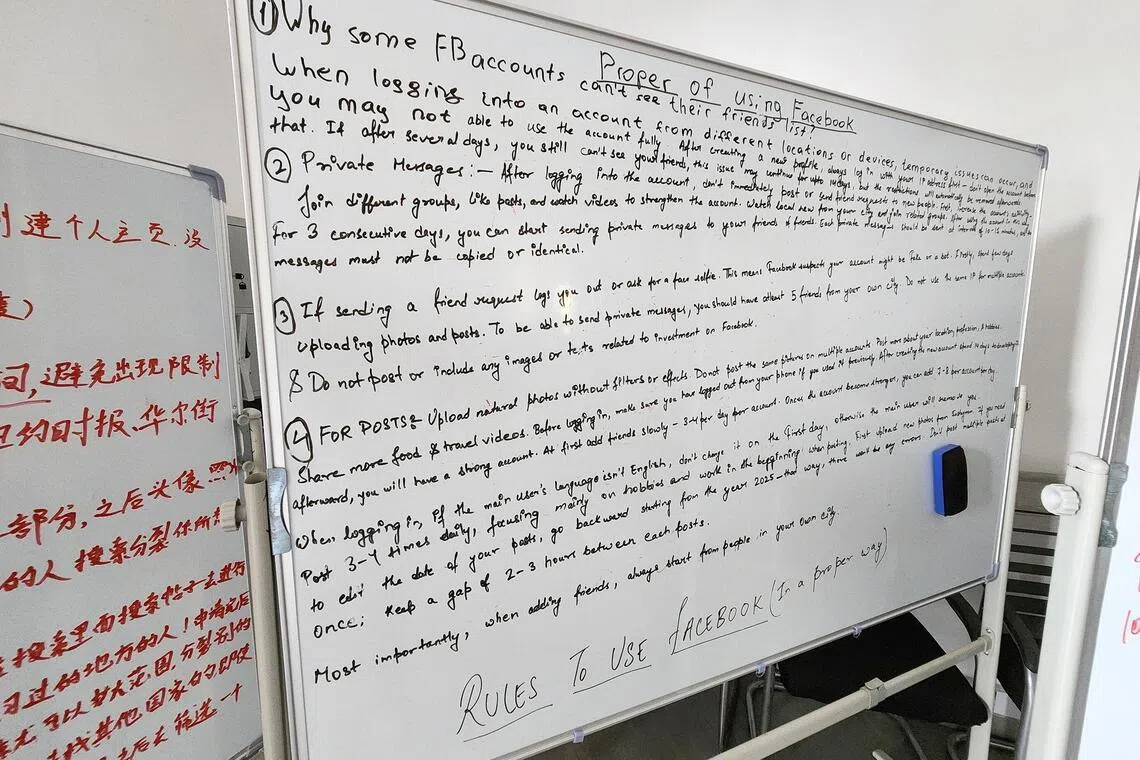 创建个人主页.没
度）
间,避免出现限制
纽约时报、华尔街
部分,之后头像
的人 搜索
搜索里面搜索帖子去进行
过的地方的人！申请完后
可以扩大范围.
找其他国家的即使
之后去筛选一个
Proper of using Facebook
① Why some FB accounts can't see their friends list?
When logging into an account from different locations or devices, temporary issues can occur, and
you may not able to use the account fully. After creating a new profile, always log in with your IP address first - don't open the account before
that. If after several days, you still can't see your friends, this issue may continue for upto 14 days, but the restrictions will automatically be removed afterwards.
② Private Messages:- After logging into the account, don't immediately post or send friend requests to new people. First, increase the account
Join different groups, Like posts, and watch videos to strengthen the account. Watch local news from your city and join related groups. After using the account
For 3 consecutive days, you can start sending private messages to your friends of friends. Each private messages should be sent at intervals of 10-15 minutes, and the
messages must not be copied or identical.
③ If sending a friend request logs you out or ask for a face selfie. This means Facebook suspects your account might be Fake or a bot. Firstly, spend few days
uploading photos and posts. To be able to send private messages, you should have atleast 5 friends from your own city. Do not use the same IP for multiple accounts.
& Do not post or include any images or texts related to investment on Facebook.
④ FOR POSTS: Upload natural photos without filters or effects Do not post the same pictures on multiple accounts Post more about your location, profession, & hobbies.
Share more food & travel videos. Before logging in, make sure you have logged out from your phone if you used it previously. After creating the new account spend 14 days to developing it
afterward, you will have a strong account. At first add friends slowly - 3-4 per day per account. Once the account become stronger, you can add 7-8 per account per day.
When logging in, If the main user's language isn't English, don't change it on the First day, otherwise the main user will remove you.
Post 3-4 times daily, focusing mainly on hobbies and work in the beginning when posting. First upload new photos from If you need
to edit the date of your posts, go backward starting from the year 2025 - that way, there won't be any errors. Don't post multiple posts at
once; Keep a gap of 2-3 hours between each posts.
Most importantly, when adding friends, always start from people in your own city.
RULES TO USE FACEBOOK (In a proper way)
10